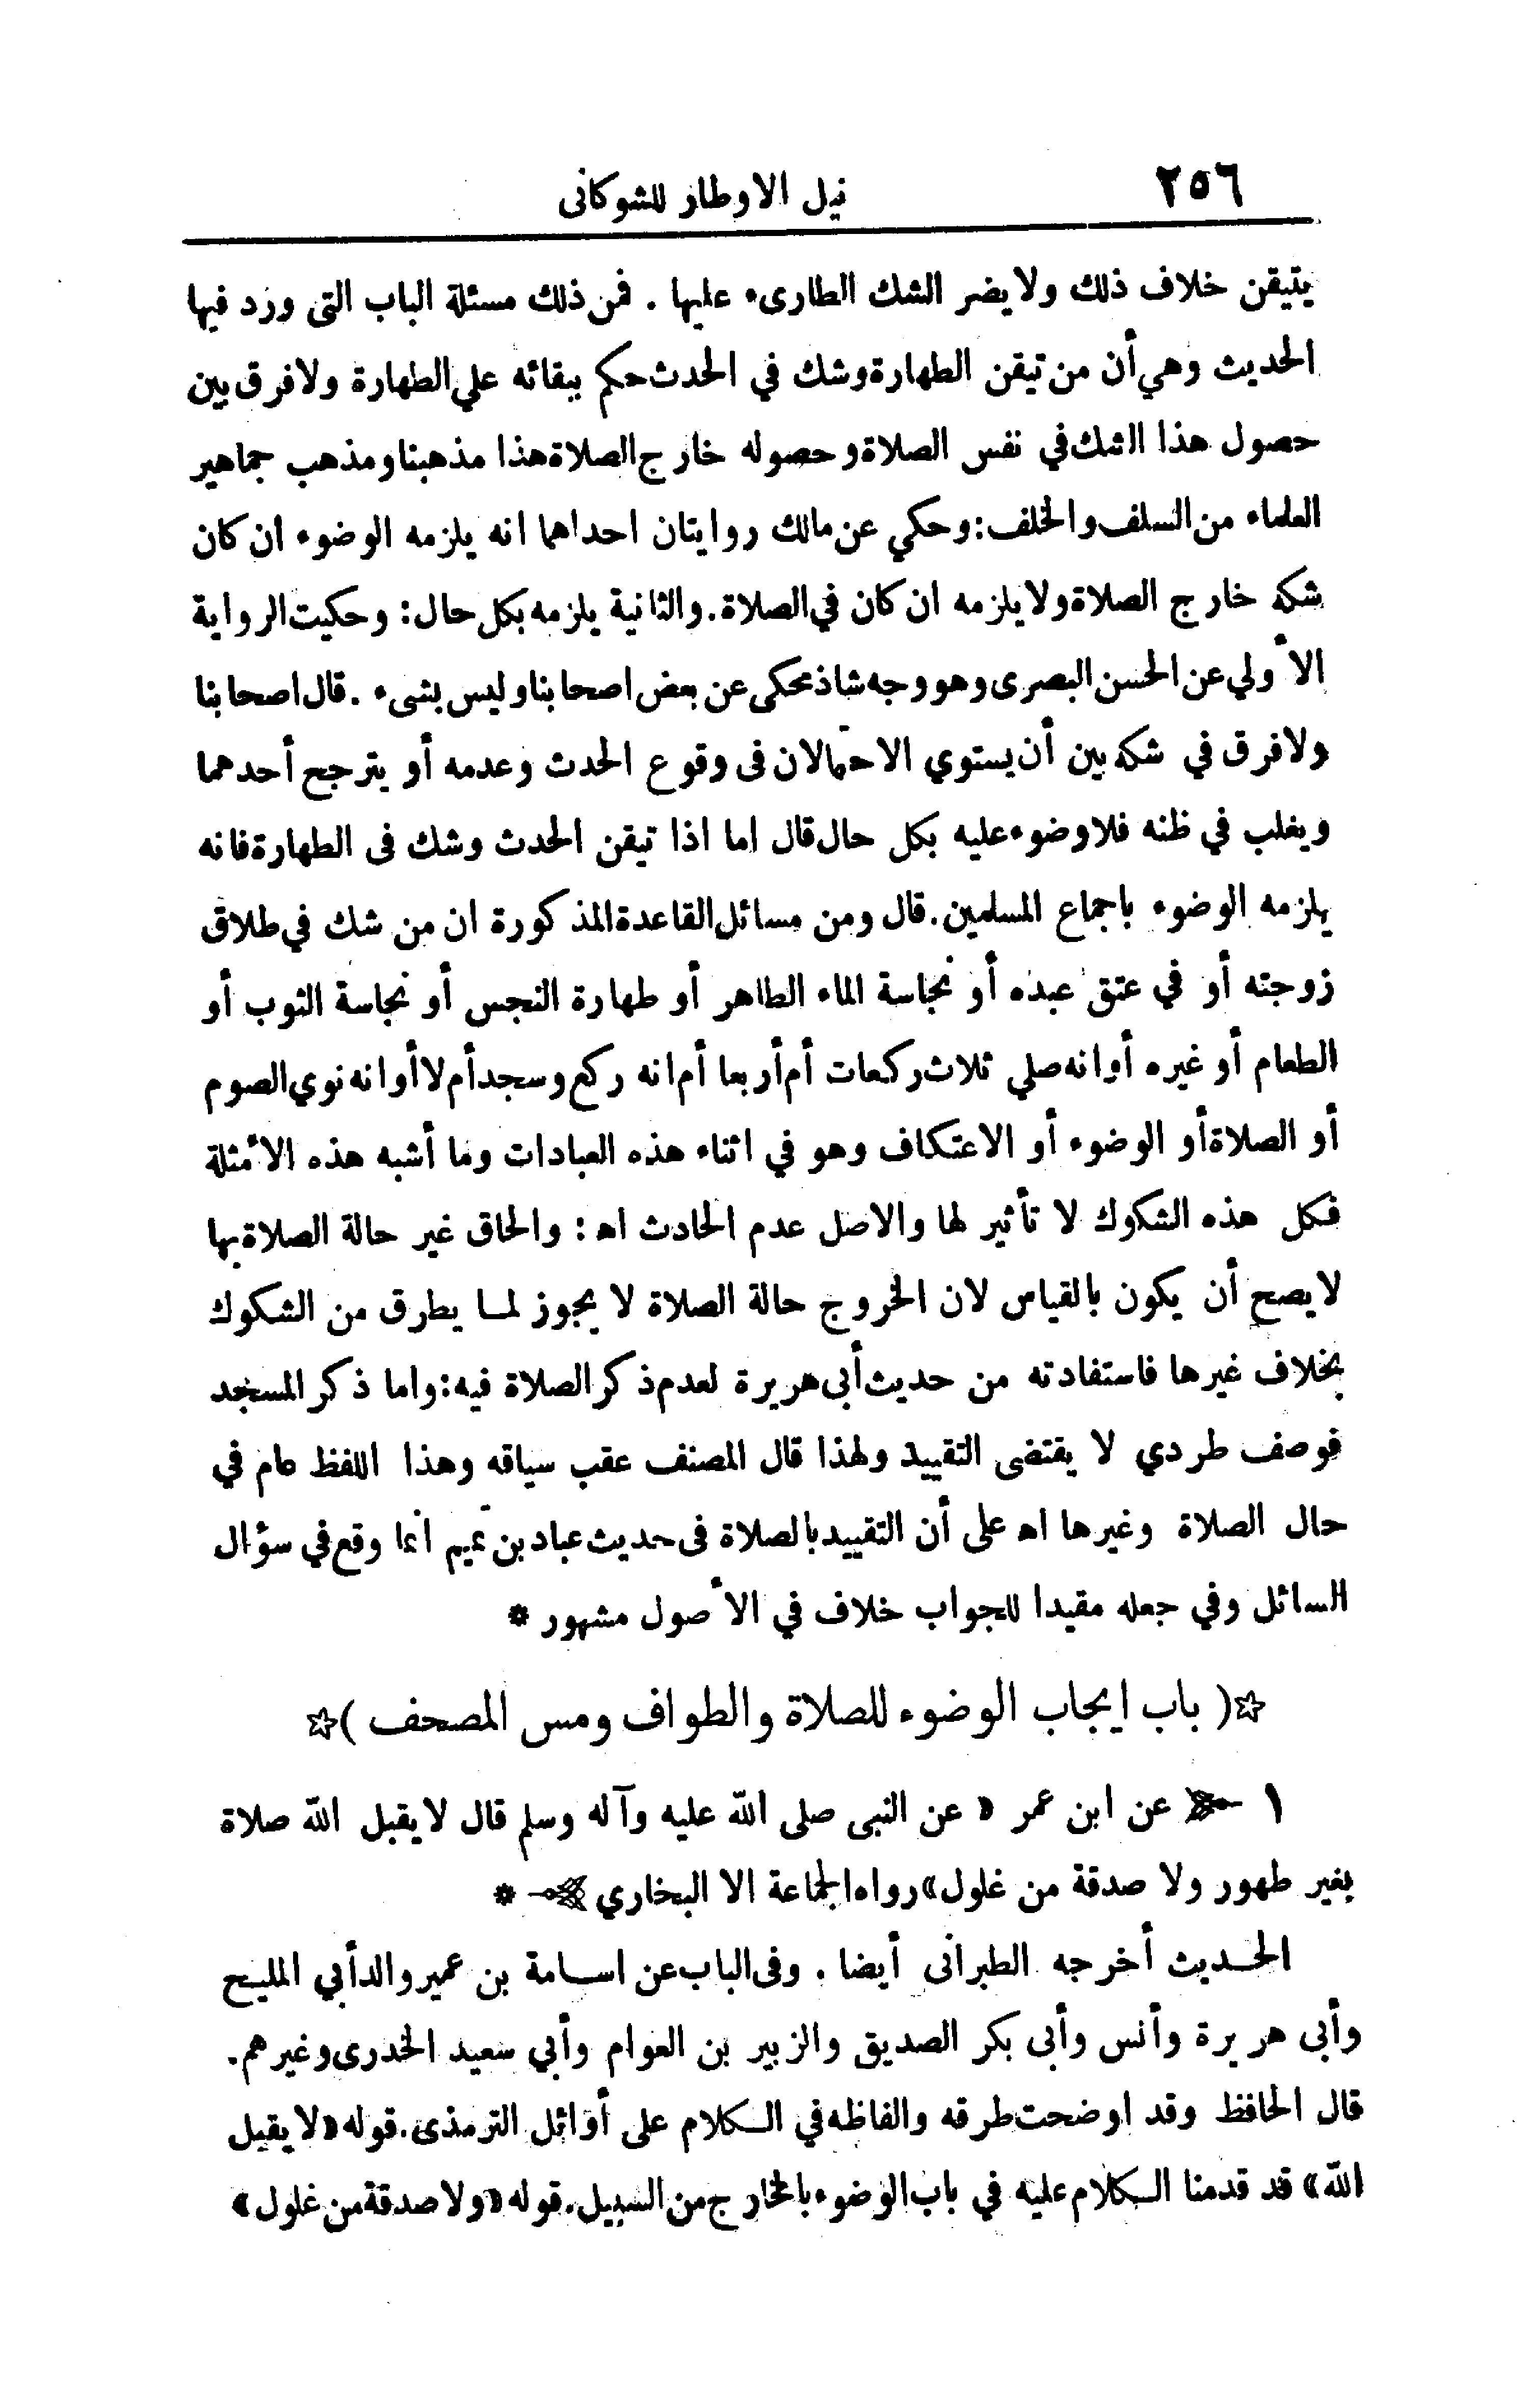 ٢٥٦
نيل الاوطار للشوكانى
يتيقن خلاف ذلك ولا يضر الشك الطارىء عليها . فمن ذلك مسئلة الباب التى ورد فيها
الحديث وهي أن من تيقن الطهارة وشك في الحدث حكم ببقائه علي الطهارة ولا فرق بين
حصول هذا الشك في نفس الصلاة وحصوله خارج الصلاة هذا مذهبنا ومذهب جماهير
العلماء من السلف والخلف : وحكي عن مالك روايتان احداهما انه يلزمه الوضوء ان كان
شكه خارج الصلاة ولا يلزمه ان كان في الصلاة . والثانية يلزمه بكل حال : وحكيت الرواية
الأولي عن الحسن البصرى وهو وجه شاذ محكى عن بعض اصحابنا وليس بشىء . قال اصحابنا
ولا فرق في شكه بين أن يستوي الاحتمالان فى وقوع الحدث وعدمه أو يترجح أحدهما
ويغلب في ظنه فلا وضوء عليه بكل حال قال اما اذا تيقن الحدث وشك فى الطهارة فانه
يلزمه الوضوء باجماع المسلمين . قال ومن مسائل القاعدة المذكورة ان من شك في طلاق
زوجته أو في عتق عبده أو نجاسة الماء الطاهر أو طهارة النجس أو نجاسة الثوب أو
الطعام أو غيره أو انه صلي ثلاث ركعات أم أربعا أم انه ركع وسجد أم لا أو انه نوي الصوم
أو الصلاة أو الوضوء أو الاعتكاف وهو في اثناء هذه العبادات وما أشبه هذه الأمثلة
فكل هذه الشكوك لا تأثير لها والاصل عدم الحادث اه : والحاق غير حالة الصلاة بها
لا يصح أن يكون بالقياس لان الخروج حالة الصلاة لا يجوز لما يطرق من الشكوك
بخلاف غيرها فاستفادته من حديث أبى هريرة لعدم ذكر الصلاة فيه : واما ذكر المسجد
فوصف طردي لا يقتضى التقييد ولهذا قال المصنف عقب سياقه وهذا اللفظ عام في
حال الصلاة وغيرها اه على أن التقييد بالصلاة فى حديث عباد بن تميم انما وقع في سؤال
السائل وفي جعله مقيدا للجواب خلاف في الأصول مشهور *
☆( باب ايجاب الوضوء للصلاة والطواف ومس المصحف )☆
١ عن ابن عمر « عن النبى صلى الله عليه وآله وسلم قال لا يقبل الله صلاة
بغير طهور ولا صدقة من غلول » رواه الجماعة الا البخاري *
الحديث أخرجه الطبرانى أيضا . وفى الباب عن اسامة بن عمير والد أبي المليح
وأبى هريرة وأنس وأبى بكر الصديق والزبير بن العوام وأبي سعيد الخدرى وغيرهم .
قال الحافظ وقد اوضحت طرقه والفاظه في الكلام على أوائل الترمذى . قوله « لا يقبل
الله » قد قدمنا الكلام عليه في باب الوضوء بالخارج من السبيل . قوله « ولا صدقة من غلول »